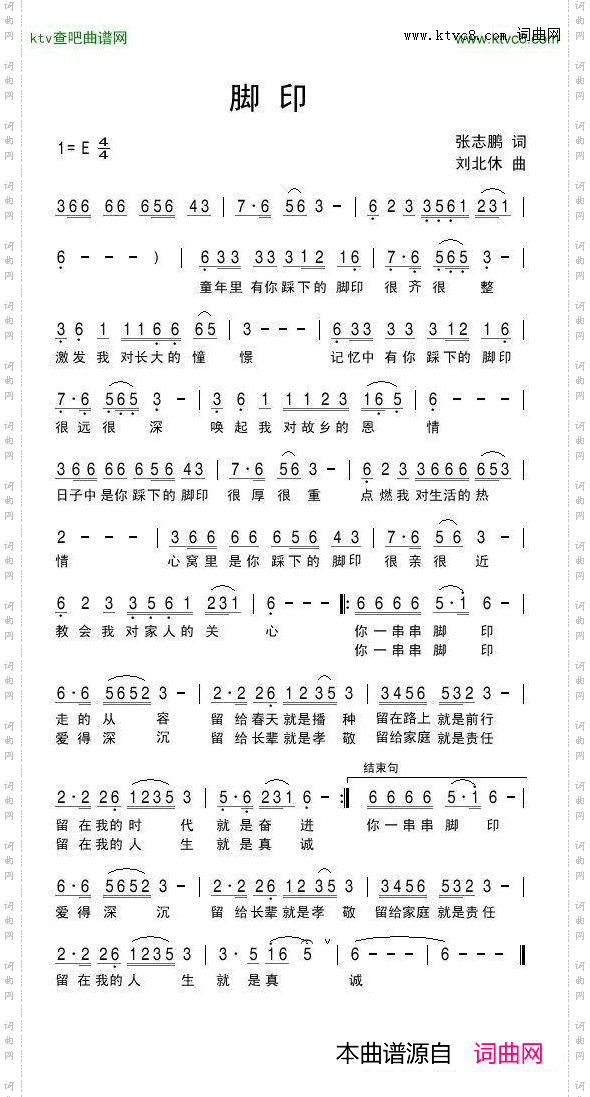 ktv查吧曲谱网
www.ktvc8.com 词曲网
www.ktvc8.com
脚 印
1=E 4/4
张志鹏 词
刘北休 曲
366 66 656 43 | 7·6 56 3 - | 6 2 3 3561 231 |
6 - - - ) | 633 33 312 16 | 7·6 565 3 - |
童年里 有你 踩下的 脚印 很 齐 很 整
3 6 1 1166 65 | 3 - - - | 633 33 312 16 |
激 发 我 对长大的 憧 憬 记忆中 有你 踩下的 脚印
7·6 565 3 - | 3 6 1 1123 165 | 6 - - - |
很 远 很 深 唤 起 我 对故乡的 恩 情
366 66 656 43 | 7·6 56 3 - | 6 2 3 3666 653 |
日子中 是你 踩下的 脚印 很 厚 很 重 点 燃 我 对生活的 热
2 - - - | 366 66 656 43 | 7·6 56 3 - |
情 心窝里 是你 踩下的 脚印 很 亲 很 近
6 2 3 3561 231 | 6 - - - ‖: 6666 5·1 6 - |
教 会 我 对家人的 关 心 你一串串 脚 印
你一串串 脚 印
6·6 5652 3 - | 2·2 26 1235 3 | 3456 532 3 - |
走 的 从 容 留 给 春天 就是播 种 留在路上 就是前行
爱 得 深 沉 留 给 长辈 就是孝 敬 留给家庭 就是责任
结束句
2·2 26 1235 3 | 5·6 231 6 - :‖ 6666 5·1 6 - |
留 在 我的 时 代 就 是 奋 进 你一串串 脚 印
留 在 我的 人 生 就 是 真 诚
6·6 5652 3 - | 2·2 26 1235 3 | 3456 532 3 - |
爱 得 深 沉 留 给 长辈 就是孝 敬 留给家庭 就是责任
2·2 26 1235 3 | 3·5 16 5 ∨ | 6 - - - | 6 - - - ‖
留 在 我的 人 生 就 是 真 诚
本曲谱源自 词曲网